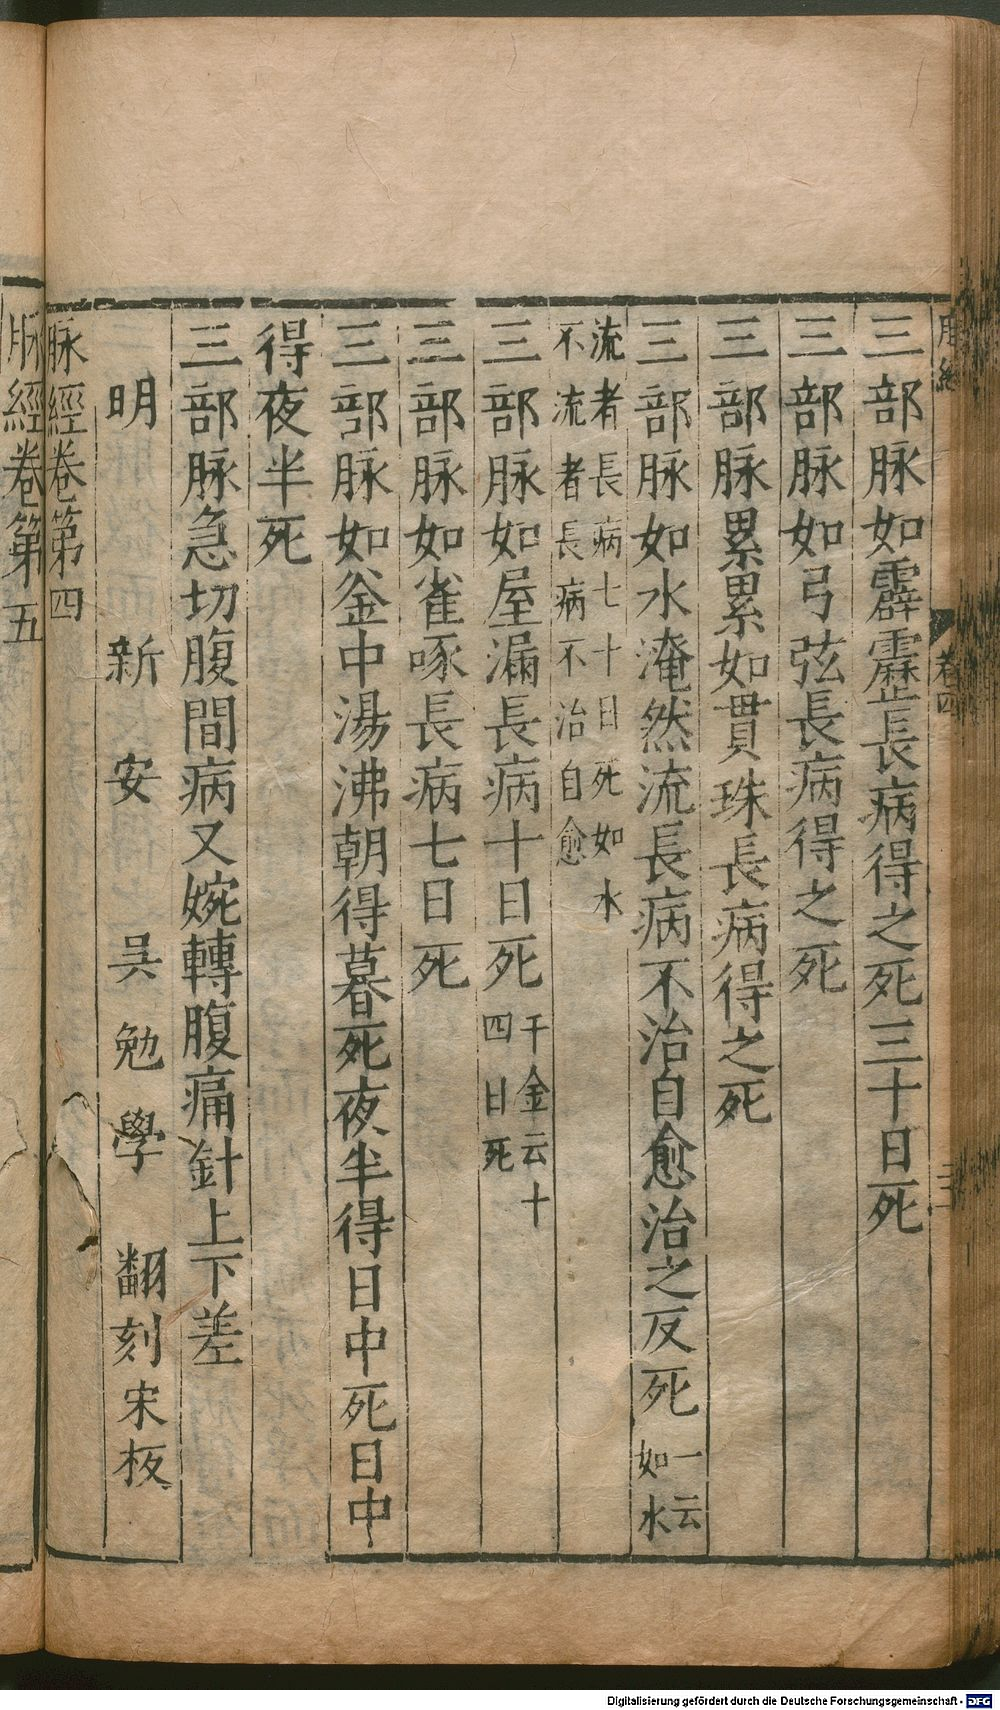 三部脉如霹靂長病得之死三十日死
三部脉如弓弦長病得之死
三部脉累累如貫珠長病得之死
三部脉如水淹然流長病不治自愈治之反死一云如水
流者長病七十日死如水
不流者長病不治自愈
三部脉如屋漏長病十日死千金云十四日死
三部脉如雀啄長病七日死
三部脉如釜中湯沸朝得暮死夜半得日中死日中
得夜半死
三部脉急切腹間病又婉轉腹痛針上下差
明 新安 吳勉學 翻刻宋板
脉經卷第四
脉經卷第五
卷四
Digitalisierung gefördert durch die Deutsche Forschungsgemeinschaft - DFG